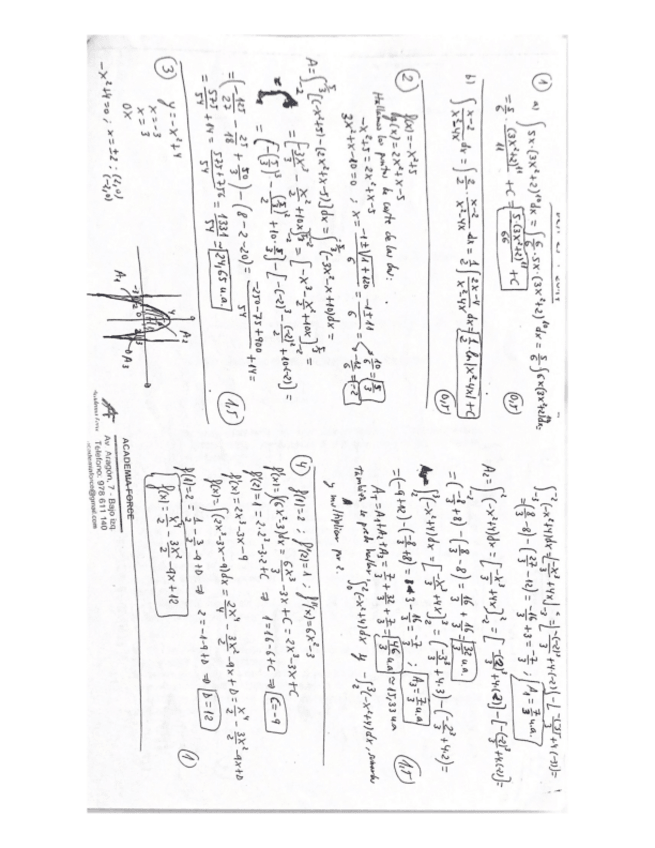 ① a) ∫5x·(3x²+2)¹⁰dx = ∫6/6·5x·(3x²+2)¹⁰dx = 5/6∫6x(3x²+2)¹⁰dx=
= 5/6·(3x²+2)¹¹/11 + C = 5·(3x²+2)¹¹/66 + C
(0,5)
b) ∫(x-2)/(x²-4x) dx = ∫2/2·(x-2)/(x²-4x) dx = 1/2∫(2x-4)/(x²-4x) dx = 1/2 ln|x²-4x| + C
(0,5)
② f(x)=-x²+5
g(x)=2x²+x-5
Hallamos los puntos de corte de las
-x²+5=2x²+x-5
3x²+x-10=0 ; x = (-1±√(1+120))/6 = (-1±11)/6 = 10/6 = 5/3
-12/6 = -2
A=∫[(-x²+5)-(2x²+x-5)]dx = ∫(-3x²-x+10)dx =
= [-3x³/3 - x²/2 + 10x] = [-x³ - x²/2 + 10x] =
= [-(5/3)³ - (5/3)²/2 + 10·5/3] - [-(-2)³ - (-2)²/2 + 10·(-2)] =
= (-125/27 - 25/18 + 50/3) - (8-2-20) = (-250-75+900)/54 + 14 =
= 575/54 + 14 = (575+756)/54 = 1331/54 = 24,65 u.a.
(1,5)
③ y=-x²+4
x=-3
x=3
0x
-x²+4=0 ; x=±2 ; (2,0)
(-2,0)
A₁
A₂
A₃
∫(-x²+4)dx = [-x³/3+4x] = [-(-2)³/3+4·(-2)] - [-(-3)³/3+4·(-3)] =
= (8/3-8) - (27/3-12) = -16/3+3 = -7/3 ; A₁ = 7/3 u.a.
A₂=∫(-x²+4)dx = [-x³/3+4x] = [-(2)³/3+4·(2)] - [-(-2)³/3+4·(-2)] =
= (-8/3+8) - (8/3-8) = 16/3 + 16/3 = 32/3 u.a.
∫(-x²+4)dx = [-x³/3+4x] = (-3³/3+4·3) - (-2³/3+4·2) =
= (-9+12) - (-8/3+8) = 3-16/3 = -7/3 ; A₃ = 7/3 u.a.
A_T = A₁+A₂+A₃ = 7/3 + 32/3 + 7/3 = 46/3 u.a. ≈ 15,33 u.a
(1,5)
También se puede hallar ∫(-x²+4)dx y -∫(-x²+4)dx,
y multiplicar por 2.
④ f(1)=2 ; f'(2)=1 ; f''(x)=6x²-3
f'(x)=∫(6x²-3)dx = 6x³/3 - 3x + C = 2x³-3x+C
f'(2)=1=2·2³-3·2+C ⇒ 1=16-6+C ⇒ C=-9
f'(x)=2x³-3x-9
f(x)=∫(2x³-3x-9)dx = 2x⁴/4 - 3x²/2 - 9x+D = x⁴/2 - 3x²/2 - 9x+D
f(1)=2 = 1/2 - 3/2 - 9+D ⇒ 2=-1-9+D ⇒ D=12
f(x) = x⁴/2 - 3x²/2 - 9x+12
(1)
ACADEMIA FORCE
Av. Aragón, 7 - Bajo Izq
Teléfono: 978 611 140
academiaforce@gmail.com
Academia Force